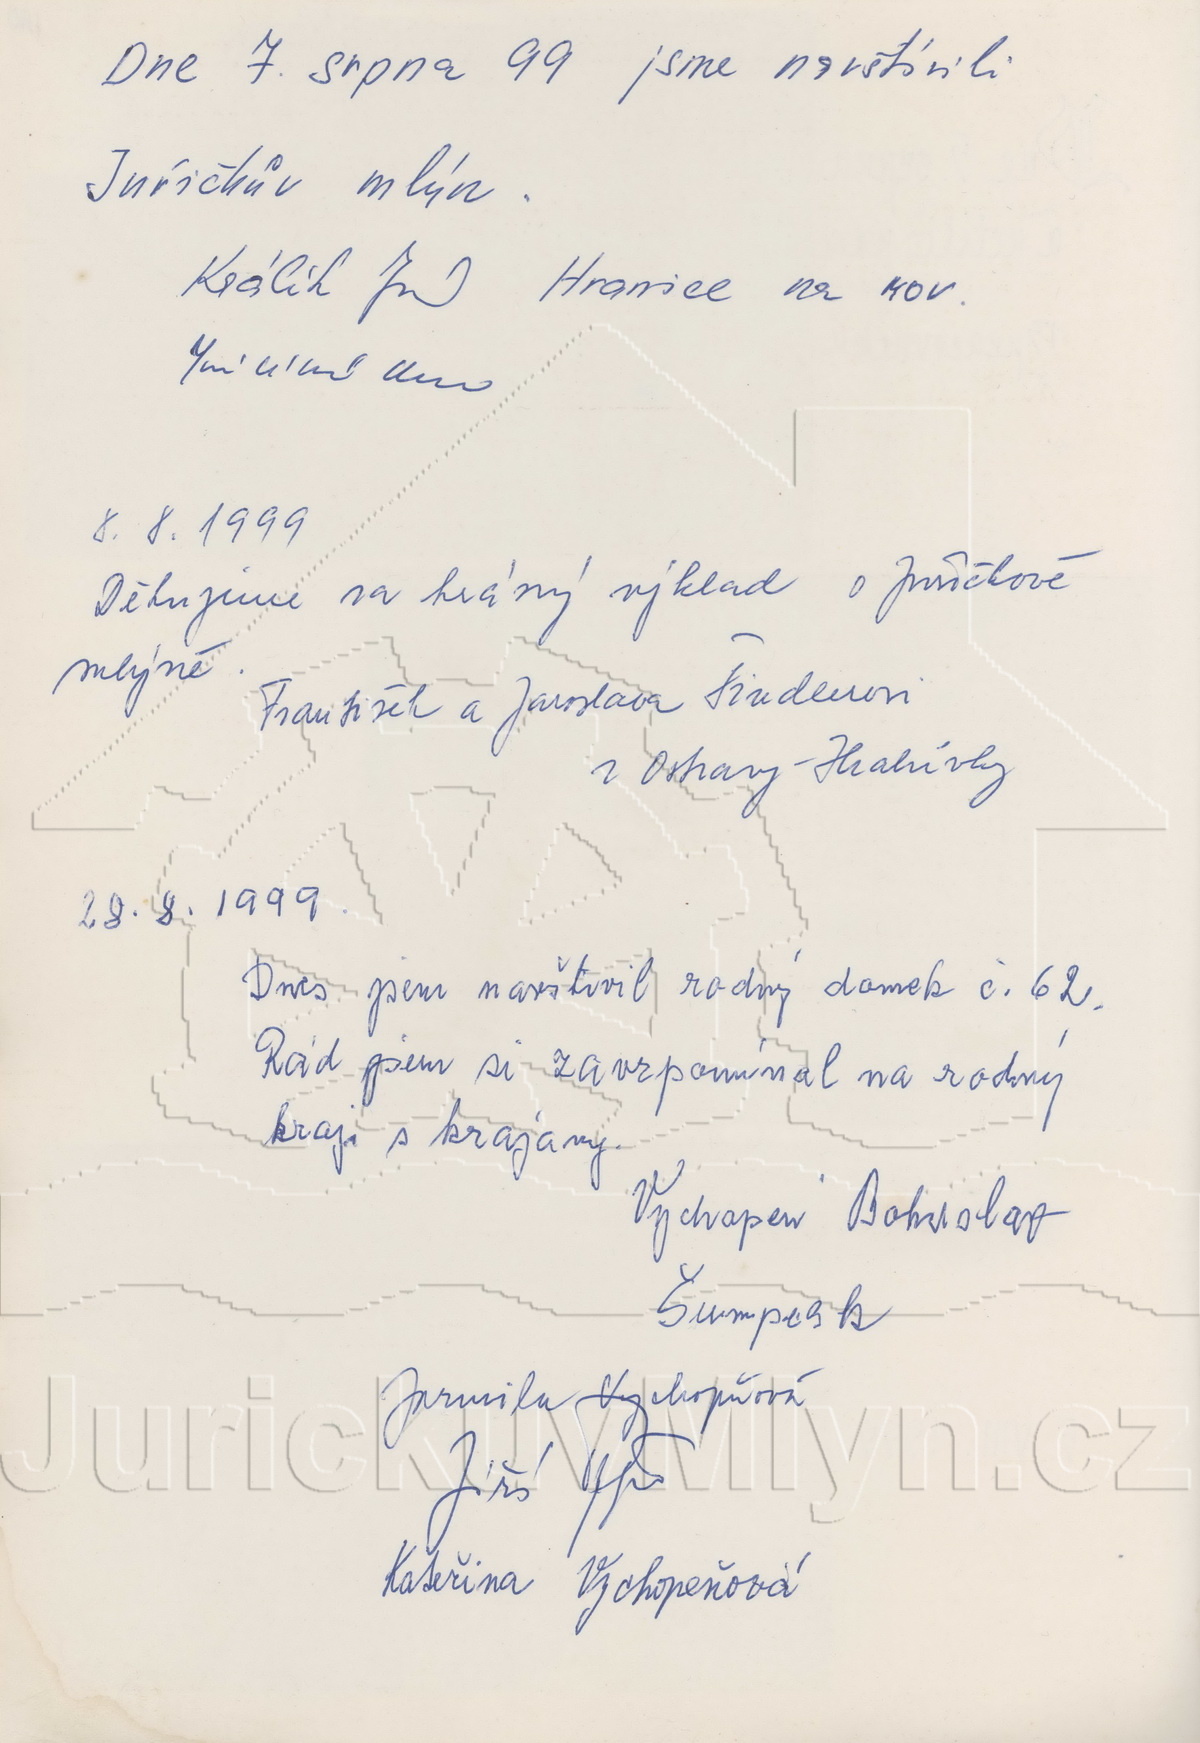 Dne 7. srpna 99 jsme navštívili
Juřičkův mlýn.
Králík Hranice na Mor.
8. 8. 1999
Děkujeme za krásný výklad o Juřičkově
mlýně.
František a Jaroslava
z Ostravy-Hrabůvky
28. 8. 1999.
Dnes jsem navštívil rodný domek č. 62.
Rád jsem si zavzpomínal na rodný
kraj s krajany.
Vychopeň Bohuslav
Šumperk
Jarmila Vychopňová
Jiří
Kateřina Vychopeňová
JurickuvMlyn.cz